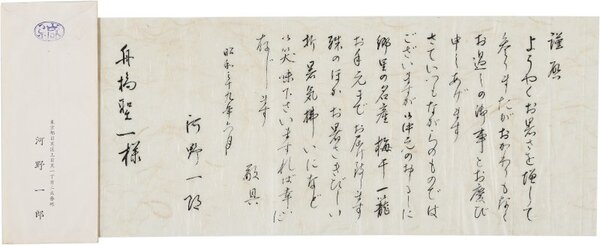 謹啓
ようやくお暑さを増して
参りましたがおかわりもなく
お過しの御事とお慶び
申しあげます
さていつもながらのものでは
ございますが御中元のおしるしに
郷里の名産梅干一籠
お手元までお届け致します
殊のほかお暑さきびしい
折暑気拂いになど
御笑味下さいますれば幸甚に
存じます
敬具
昭和三十九年六月
河野一郎
舟橋聖一様
河野一郎